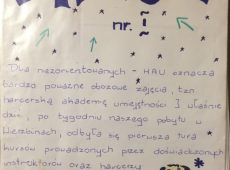 nr. 1
Dla niezorientowanych - HAU oznacza
bardzo poważne obozowe zajęcia, tzn
harcerską akademię umiejętności I właśnie
dziś, po tygodniu naszego pobytu w
Wierzbinach, odbyła się pierwsza tura
kursów prowadzonych przez doświadczonych
instruktorów oraz harcerzy